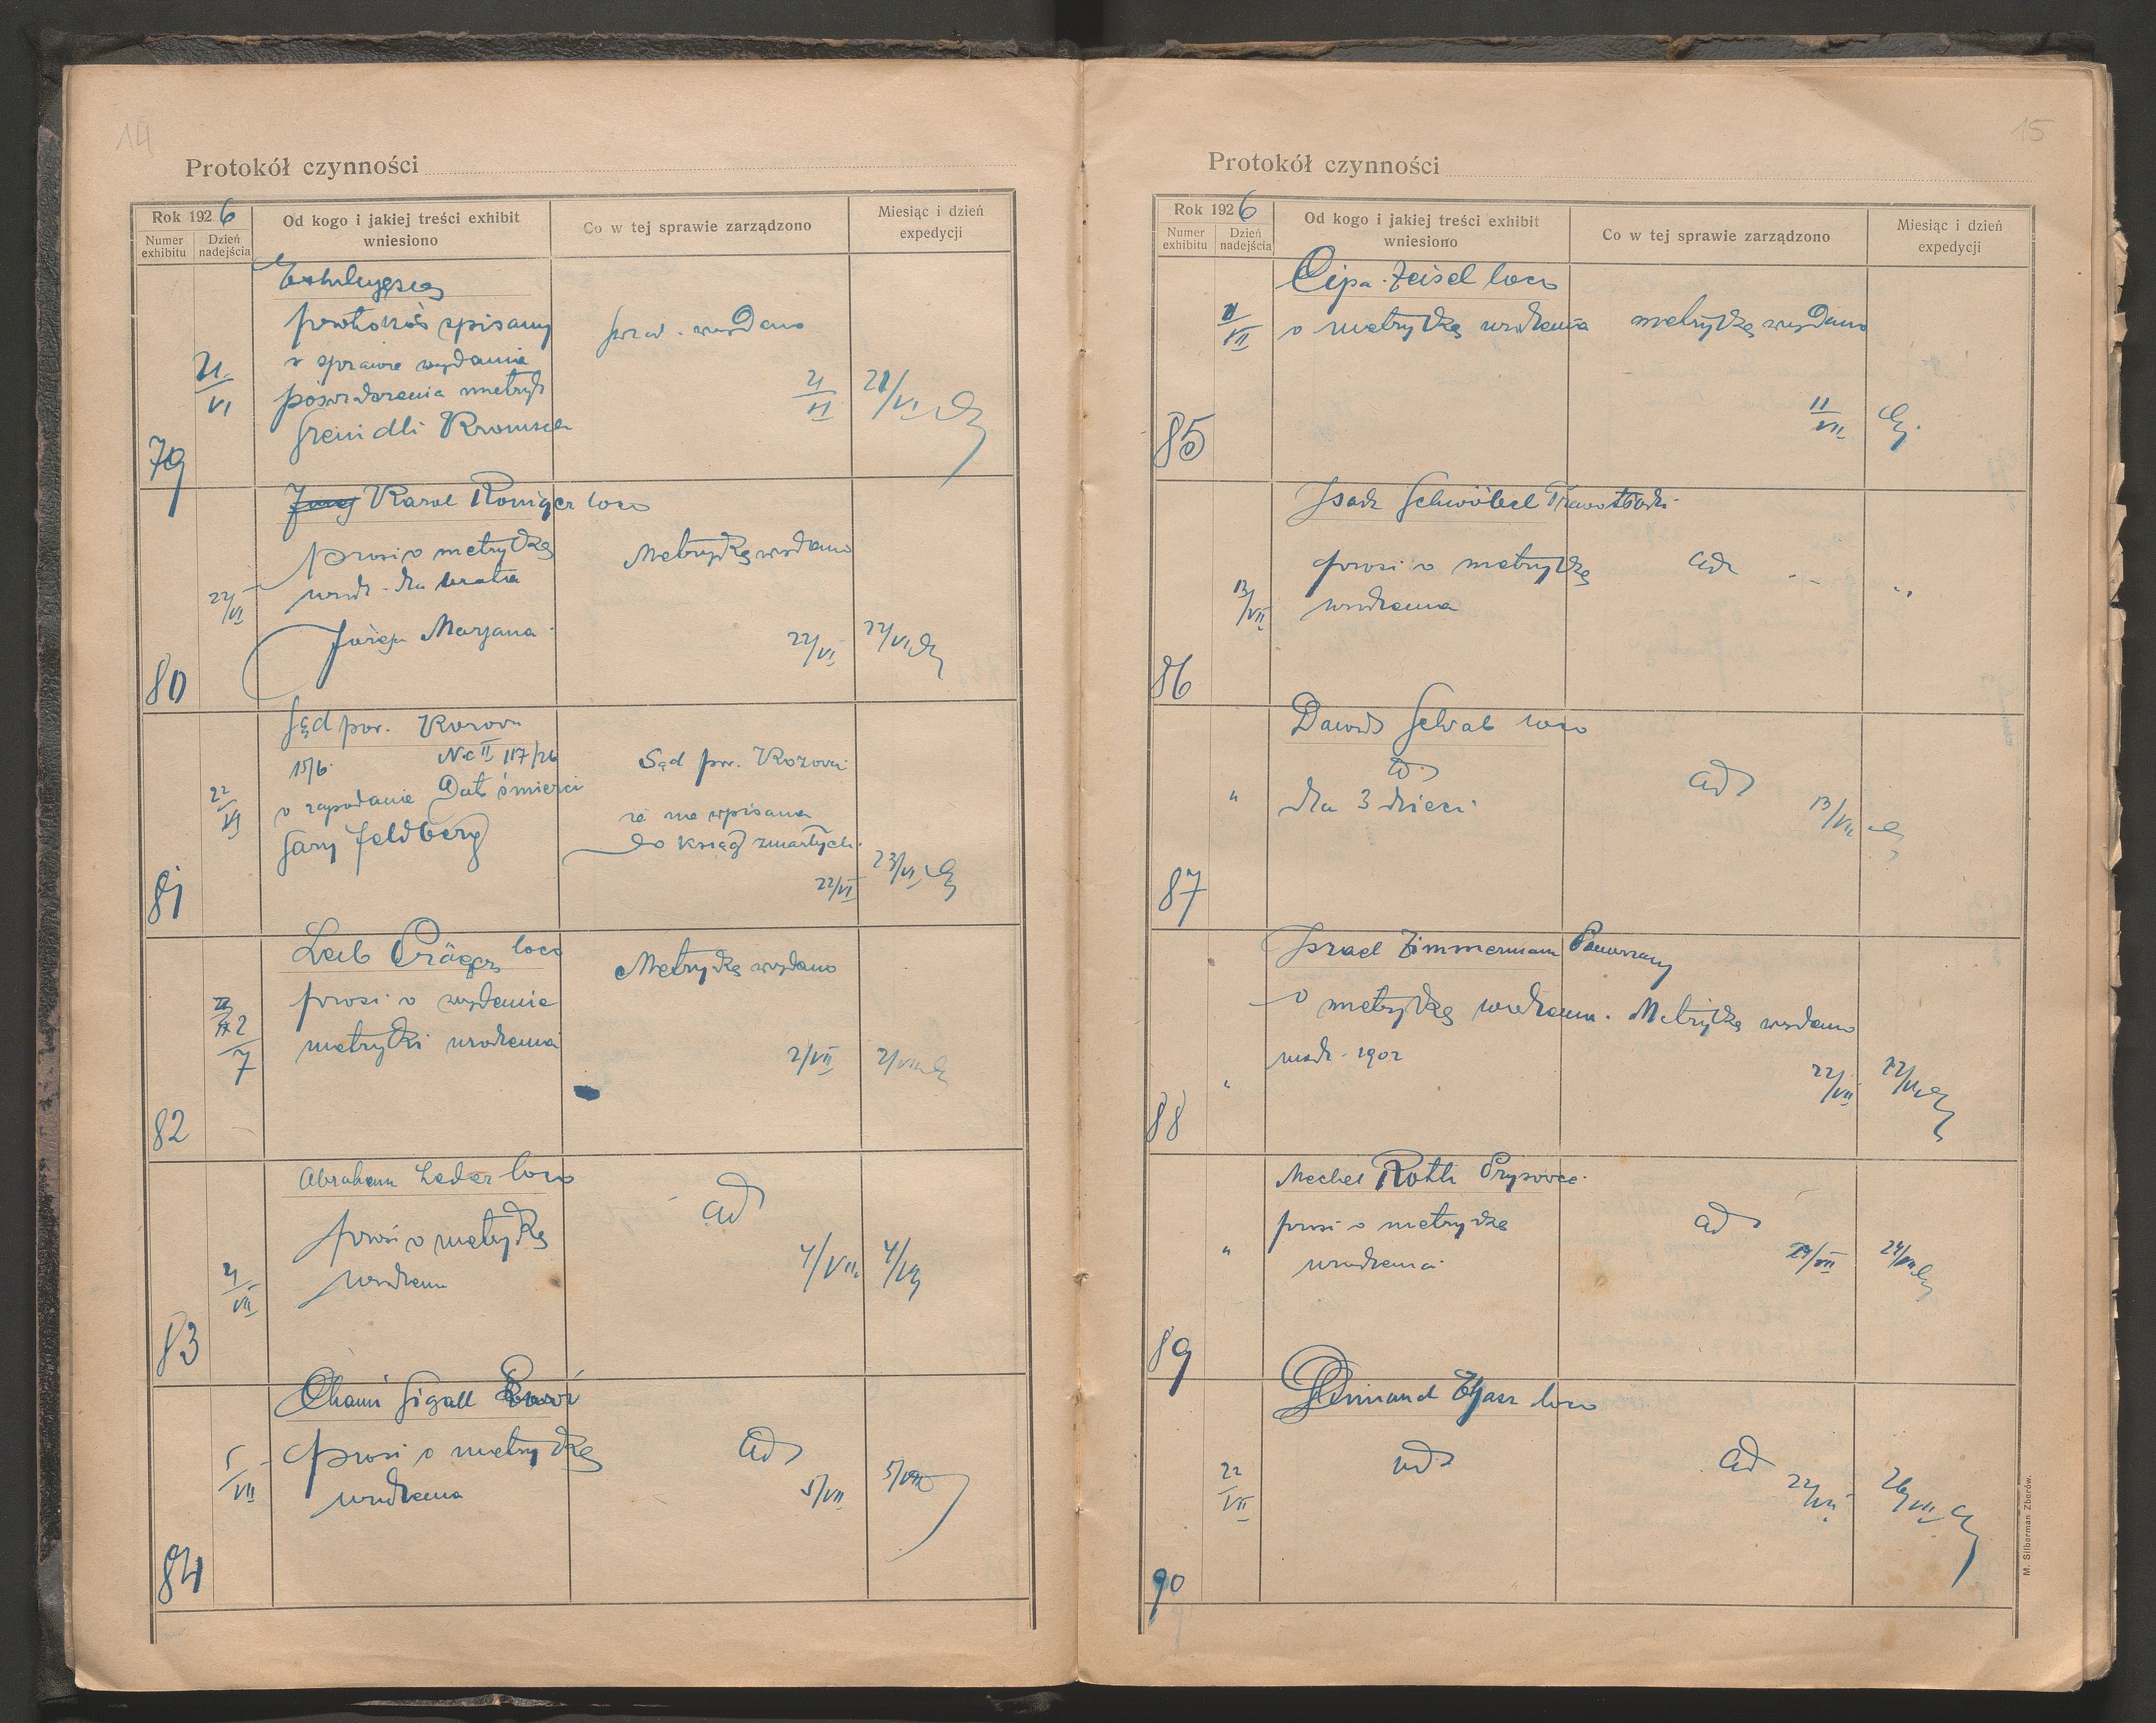 14
Protokół czynności
Rok 1926
Numer exhibitu
Dzień nadejścia
Od kogo i jakiej treści exhibit wniesiono
Co w tej sprawie zarządzono
Miesiąc i dzień expedycji
79
21/VI
protokół spisany
w sprawie wydania
poświadczenia metryk
wydano
21/VI
21/VI
80
22/VI
Karol Roniger loco
prosi o metrykę
urodz. dla brata
Józefa Marjana
Metrykę wydano
22/VI
22/VI
81
22/VI
Sąd pow. Kozowa
15/6 Nc II 117/26
o zapodanie Daty śmierci
Sary Feldberg
Sąd pow. Kozowa
że nie wpisana
do ksiąg zmarłych.
22/VI
23/VI
82
2/7
Leib Präger loco
prosi o wydanie
metryki urodzenia
Metrykę wydano
2/VII
2/VII
83
4/VII
Abraham Leder loco
prosi o metrykę
urodzenia
ad
4/VII
4/VII
84
5/VII
Chaim Sigall
prosi o metrykę
urodzenia
ad
5/VII
5/VII
15
Protokół czynności
Rok 1926
Numer exhibitu
Dzień nadejścia
Od kogo i jakiej treści exhibit wniesiono
Co w tej sprawie zarządzono
Miesiąc i dzień expedycji
85
Cipa Zeisel loco
o metrykę urodzenia
metrykę wydano
11/VII
86
13/VII
Isak Schwöbel
prosi o metrykę
urodzenia
ad
"
87
"
Dawid Schwab loco
ad
dla 3 dzieci
ad
13/VII
88
"
Israel Zimmermann Pomorzany
o metrykę urodzenia.
urodz. 1902
Metrykę wydano
22/VII
22/VII
89
"
Mechel Roth Prysowce
prosi o metrykę
urodzenia
ad
24/VII
24/VII
90
22/VII
loco
ad
ad
22/VII
26/VII
M. Silberman Zborów.